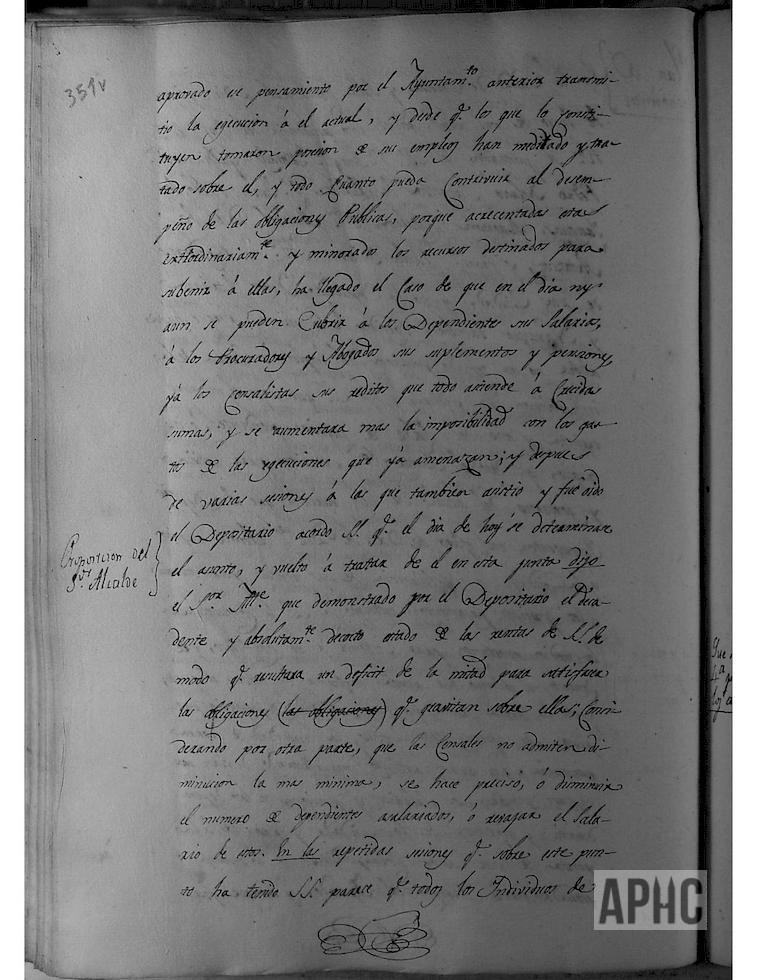 351v
aprovado ese pensamiento por el Ayuntam.to anterior transmi-
tio la egecucion á el actual, y desde q.e los que lo consti-
tuyen tomaron posesion de sus empleos han meditado y tra-
tado sobre el, y todo Cuanto pueda Contrivuir al desem-
peño de las obligaciones Publicas, porque acrecentadas estas
extraordinariam.te y minorados los recursos destinados para
subenir á ellas, ha llegado el Caso de que en el dia ny
aun se pueden Cubrir á los Dependientes sus Salarios,
á los Procuradores y Abogados sus suplementos y pensiones,
yá los censalistas sus reditos que todo asciende á Crecidas
sumas, y se aumentara mas la imposibilidad con los gas-
tos de las egecuciones que yá amenazan; y despues
de varias sesiones á las que tambien asistio y fue oido
el Depositario acordo S.S. q.e el dia de hoy se determinase
Proposicion del
S.or Alcalde
el asunto, y vuelto á tratar de el en esta junta dijo
el S.or Alc.e que demonstrado por el Depositario el deca-
dente y absolutam.te decocto estado de las rentas de S.S. de
modo q.e resultara un deficit de la mitad para satisfacer
las obligaciones (las obligaciones) q.e gravitan sobre ellas; Consi-
derando por otra parte, que las Censales no admiten di-
minucion la mas minima, se hace preciso, ó diminuir
el numero de dependientes asalariados, ó revajar el Sala-
rio de estos. En las repetidas sesiones q.e sobre este pun-
to ha tenido S.S. parece q.e todos los Individuos de
APHC